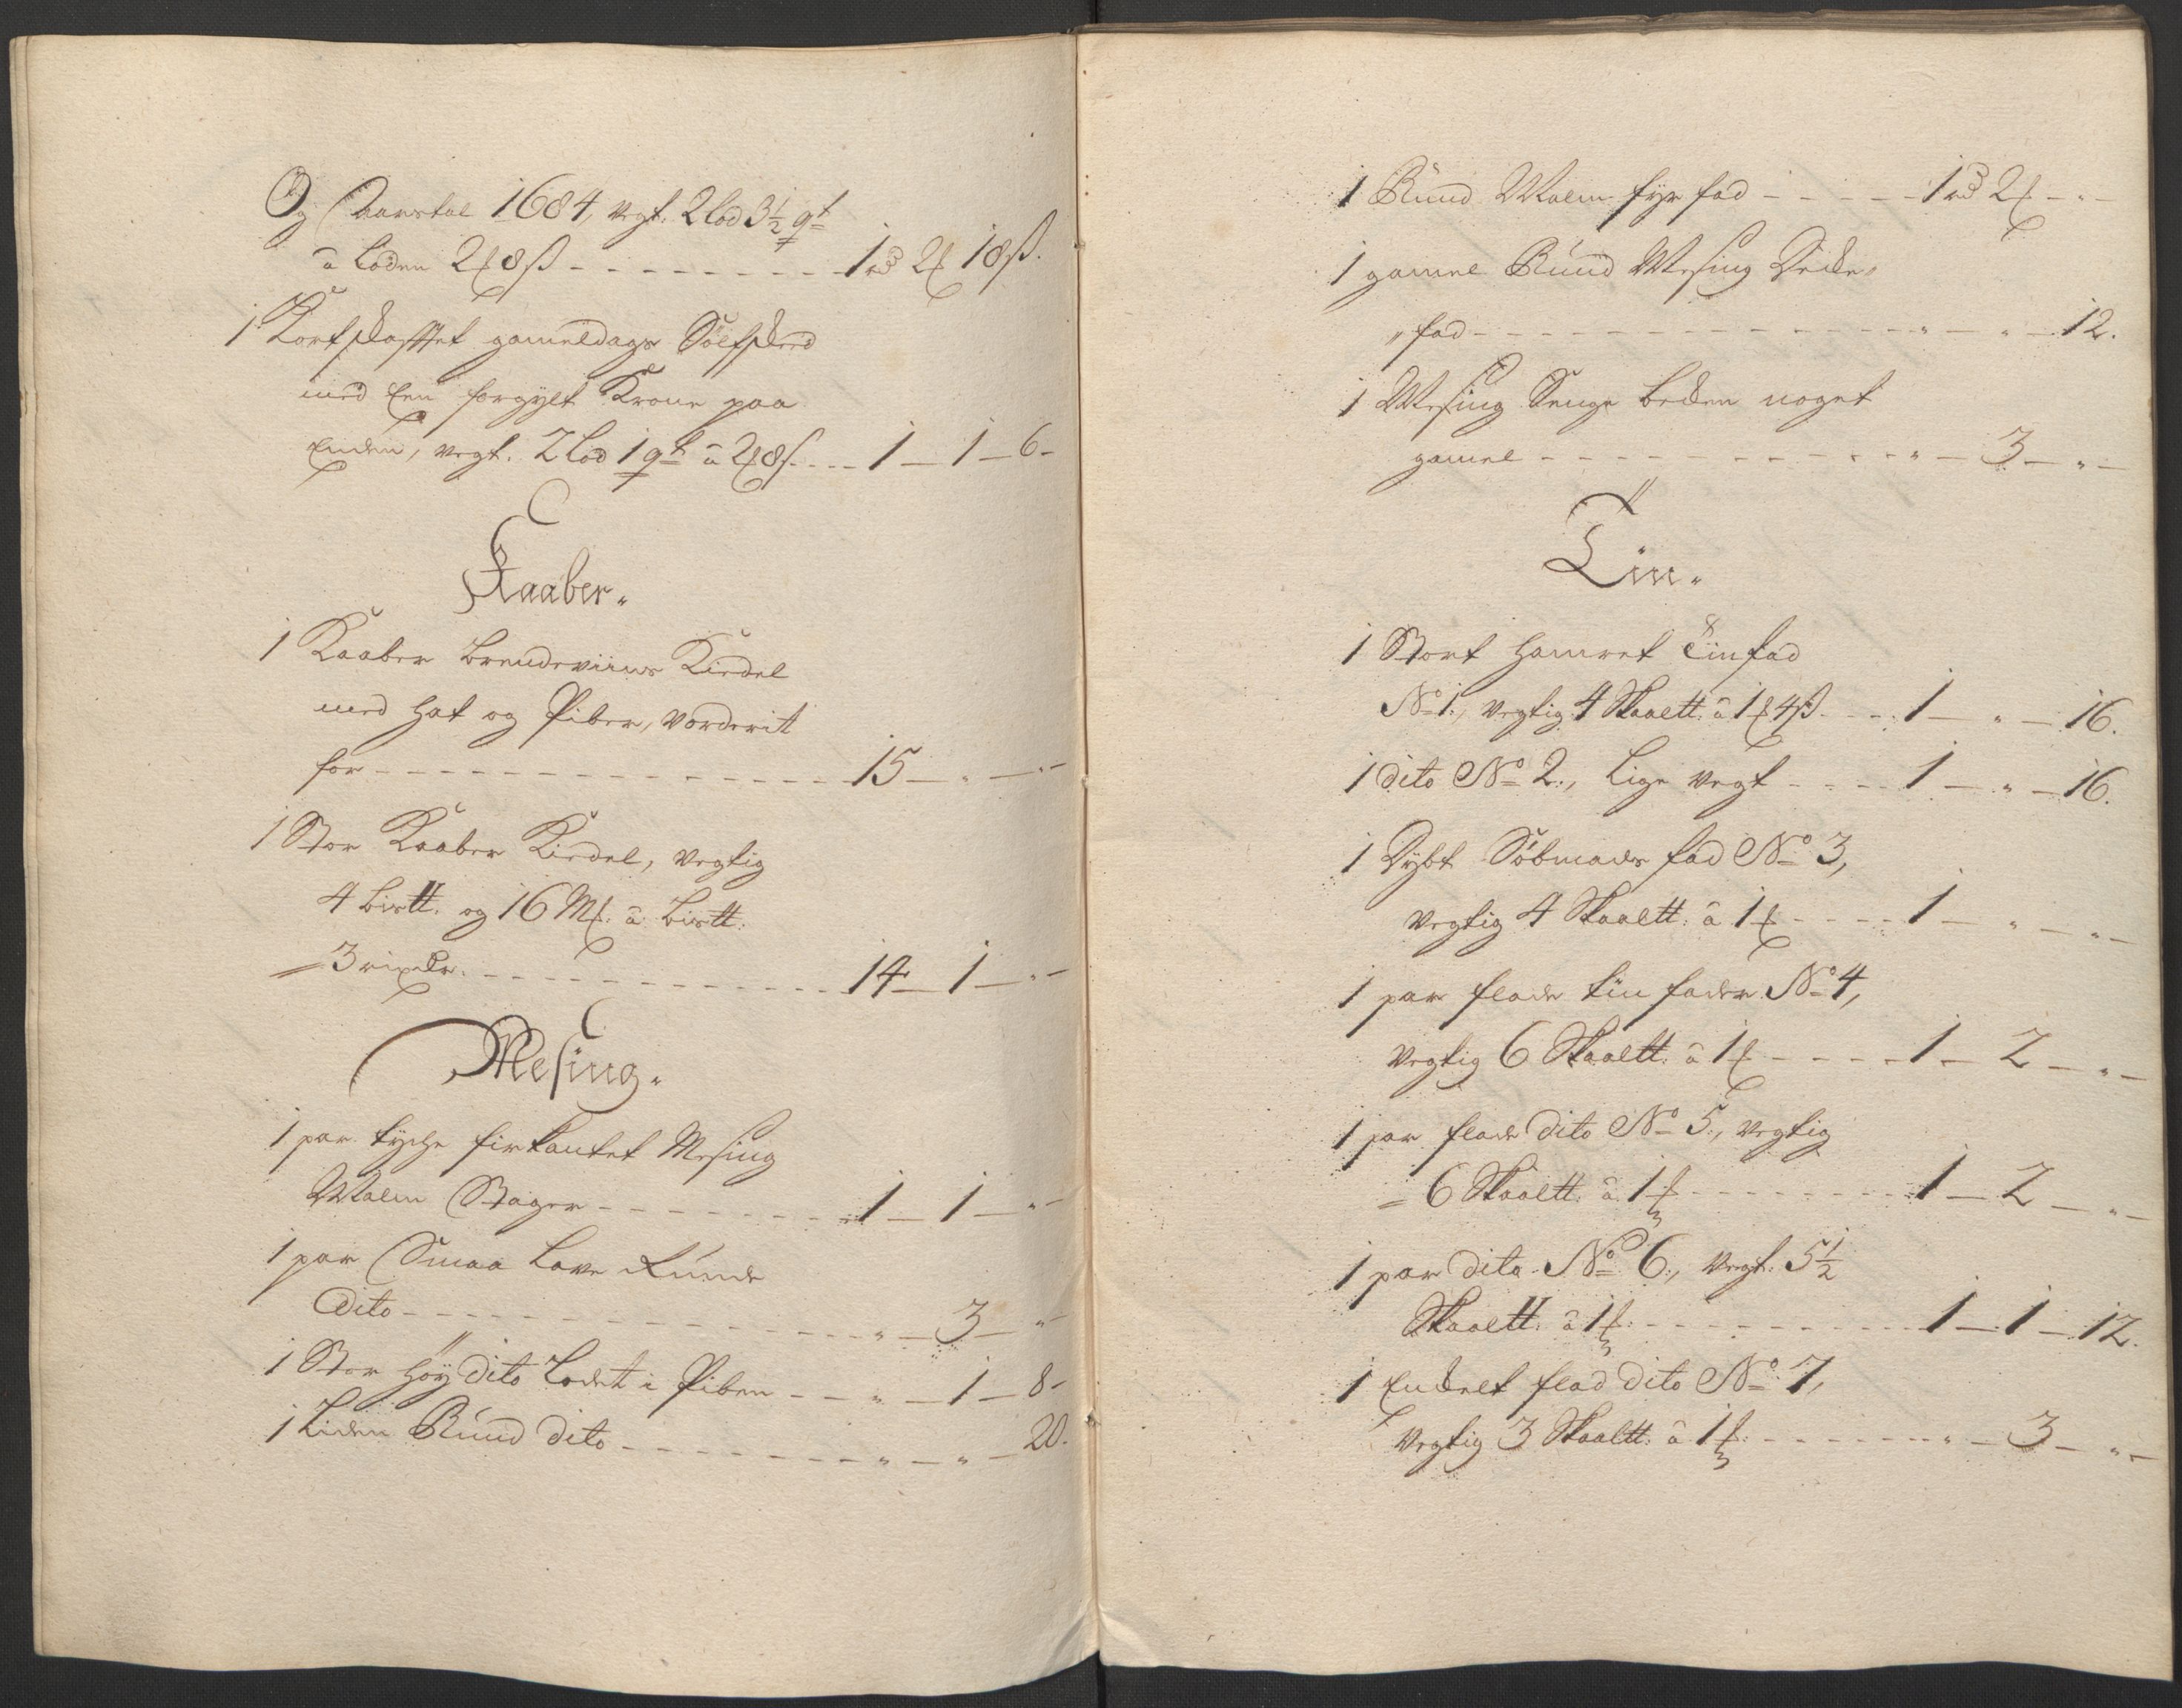 Og Aarstal 1684, vegt. 2 lod 3½ qt
â Loden 2ʄ 8ß - - - - - - 1 rd 2ʄ 18ß.
1 Kort skafftet gameldags Sølfskeed
med Een forgylt Krone paa
Enden, vegt. 2 Lod 1 qt â 2ʄ 8ß - - - 1 — 1 — 6 -
Kaaber.
1 Kaaber Brendeviins Kiedel
med Hat og Piber, vorderit
for - - - - - - 15 — " — " —
1 Stor Kaaber Kiedel, vegtig
4 bis℔. og 16 Mʄ. â Bis℔.
= 3 rixdlr. - - - - - - 14 — 1 — " —
Mesing.
1 par tyche firkantet Mesing
Malm Stager - - - - - 1 — 1 — " —
1 par Smaa Lave Runde
Dito - - - - - - " — 3 — "
1 Stor Høy dito Lodet i Piben - - " — 1 — 8 -
1 Liden Rund dito - - - - - " — " — 20.
1 Rund Malm fyr fad - - - - - 1 rd 2ʄ — " —
1 gamel Rund Mesing Decke„
„fad - - - - - - " — " — 12.
1 Mesing Senge Becken noget
gamel - - - - - - " — 3 — " —
Tin.
1 Stort hamret Tinfad
No 1., vegtig 4 Skaal℔. â 1ʄ 4ß - - - 1 — " — 16.
1 dito No 2., Lige vegt - - - - 1 — " — 16.
1 Dybt Søbmads fad No 3,
vegtig 4 Skaal℔. â 1ʄ - - - - 1 — " — " —
1 par flade tin fader No 4,
vegtig 6 Skaal℔. â 1ʄ - - - - 1 — 2 — " —
1 par flade dito No 5., vegtig
= 6 Skaal℔. â 1ʄ - - - - - - 1 — 2 — " —
1 par dito No 6., vegt. 5½
Skaal℔. â 1ʄ. - - - - - 1 — 1 — 12.
1 Enkelt flad dito No 7,
vegtig 3 Skaal℔. â 1ʄ. - - - - " — 3 — " —